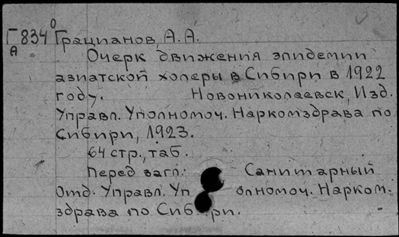 Г834 Грацианов А.А.
А
Очерк движения эпидемии
азиатской холеры в Сибири в 1922
году. Новониколаевск, Изд.
Управл. Уполномоч. Наркомздрава по
Сибири, 1923.
64 стр., таб.
Перед загл: Санитарный
Отд. Управл. Уполномоч. Нарком-
здрава по Сибири.